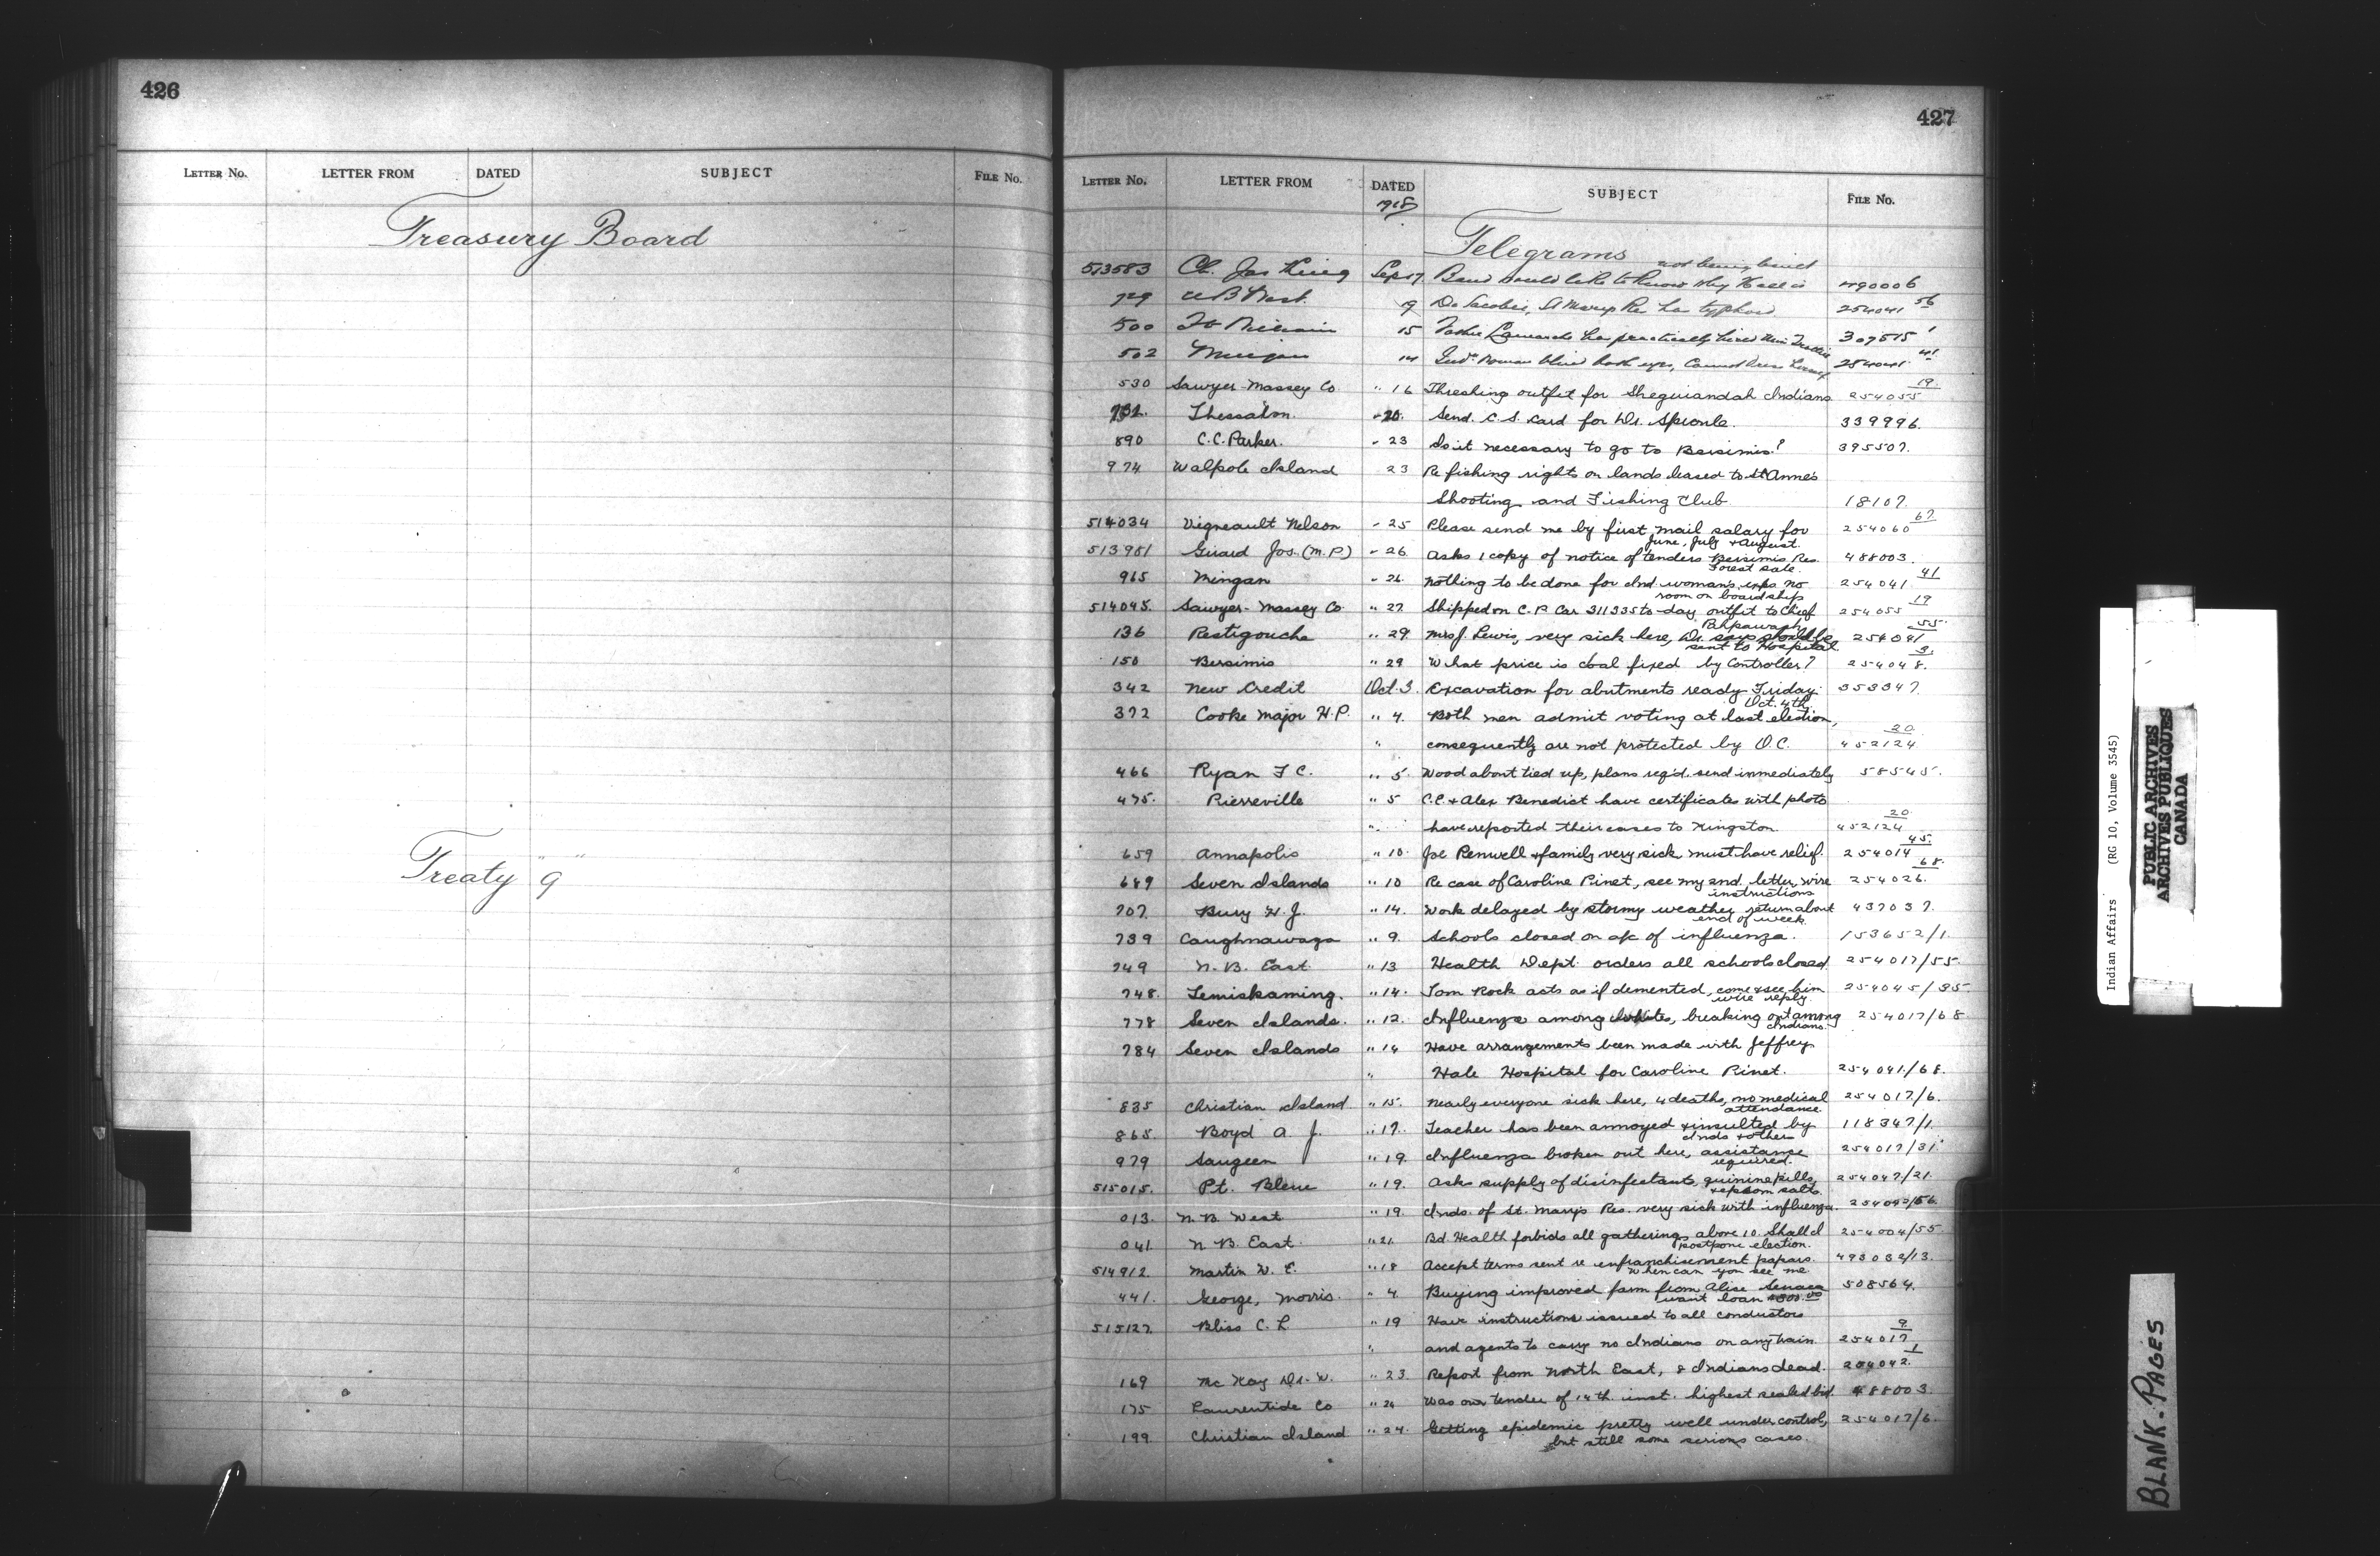 426
LETTER NO. LETTER FROM DATED SUBJECT FILE NO.
Treasury Board
Treaty "9"
427
LETTER NO. LETTER FROM DATED SUBJECT FILE NO.
1918
Telegrams
not being hired
513583 Ch. Jas King Sep 17 Band would like to know why Hall is 490006
729 N B West 19 De Jacobie, St Marys Re has typhoid 254041 56
500 15 Father has practically hired 307515 1
502 Mingan 14 Ind. woman blind both eyes, Cannot dress herself 254041 41
530 Sawyer-Massey Co " 16 Threshing outfit for Sheguiandah Indians 254055 19
732. Thessalon " 20. Send C.S. card for Dr. Sproule. 339996.
890 C.C. Parker. " 23 Is it necessary to go to Bersimis? 395507.
974 Walpole Island 23 Re fishing rights on lands leased to St Anne's
Shooting and Fishing Club 18107.
514034 Vigneault Nelson " 25 Please send me by first mail salary for 254060 67
June, July & August.
513951 Girard Jos. (M.P.) " 26 Asks 1 copy of notice of tenders Bersimis Res. 488003.
Forest sale.
965 Mingan " 26 Nothing to be done for Ind. woman's eyes no 254041 41
room on boardship
514045. Sawyer-Massey Co. " 27 Shipped on C.P. Car 311335 to-day outfit to Chief 254055 19
Pahpawash
136 Restigouche " 29 Mrs J. Lewis, very sick here, Dr. says should be 254041 55
sent to Hospital
150 Bersimis " 29 What price is coal fixed by Controller? 254048. 3.
342 New Credit Oct. 3 Excavation for abutments ready Friday 353347.
Oct. 4th.
372 Cooke Major H.P. " 4. Both men admit voting at last election,
" consequently are not protected by O.C. 452124 20
466 Ryan F C. " 5. Wood about tied up, plans req'd. send immediately 58545.
475. Pierreville " 5 C.C. & Alex Benedict have certificates with photo
" have reported their cases to Kingston. 452124 20
659 Annapolis " 10 Joe Penwell & family very sick must have relief. 254014 45.
689 Seven Islands " 10 Re case of Caroline Pinet, see my 2nd. letter, wire 254026. 68.
instructions
707. Bury H. J. " 14. Work delayed by stormy weather return about 437037.
end of week.
739 Caughnawaga " 9. Schools closed on a/c of influenza. 153652/1.
749 N. B. East " 13 Health Dept. orders all schools closed 254017/55.
748. Temiskaming. " 14. Tom Rock acts as if demented, come & see him 254045/35.
wire reply.
778 Seven Islands. " 12. Influenza among whites, breaking out among 254017/68
Indians.
784 Seven Islands " 14 Have arrangements been made with Jeffrey
" Hale Hospital for Caroline Pinet. 254041/68.
835 Christian Island " 15. Nearly everyone sick here, 4 deaths, no medical 254017/6.
attendance.
865. Boyd A. J. " 17. Teacher has been annoyed & insulted by 118347/1.
Inds & others
979 Saugeen " 19. Influenza broken out here, assistance 254017/31.
required.
515015. Pt. Bleue " 19. Asks supply of disinfectants, quinine pills, 254047/21.
& epsom salts.
013. N. B. West " 19. Inds. of St. Marys Res. very sick with influenza. 254042/56.
041. N B. East. " 21. Bd. Health forbids all gatherings above 10. Shall I 254004/55.
postpone election.
514912. Martin W. E. " 18 Accept terms sent re enfranchisement papers. 493032/13.
When can you see me.
441. George, Morris. " 4. Buying improved farm from Alice Seneca 508564.
want loan $800.00
515127. Bliss C. L " 19 Have instructions issued to all conductors
" and agents to carry no Indians on any train 254017 9.
169 McKay Dr. W. " 23 Report from North East, 8 Indians dead. 254042. 1
175 Laurentide Co " 24 Was our tender of 14th. inst. highest sealed bid 488003.
199. Christian Island " 24. Getting epidemic pretty well under control, 254017/6.
but still some serious cases.
Indian Affairs (RG 10, Volume 3545)
PUBLIC ARCHIVES
ARCHIVES PUBLIQUES
CANADA
BLANK-PAGES